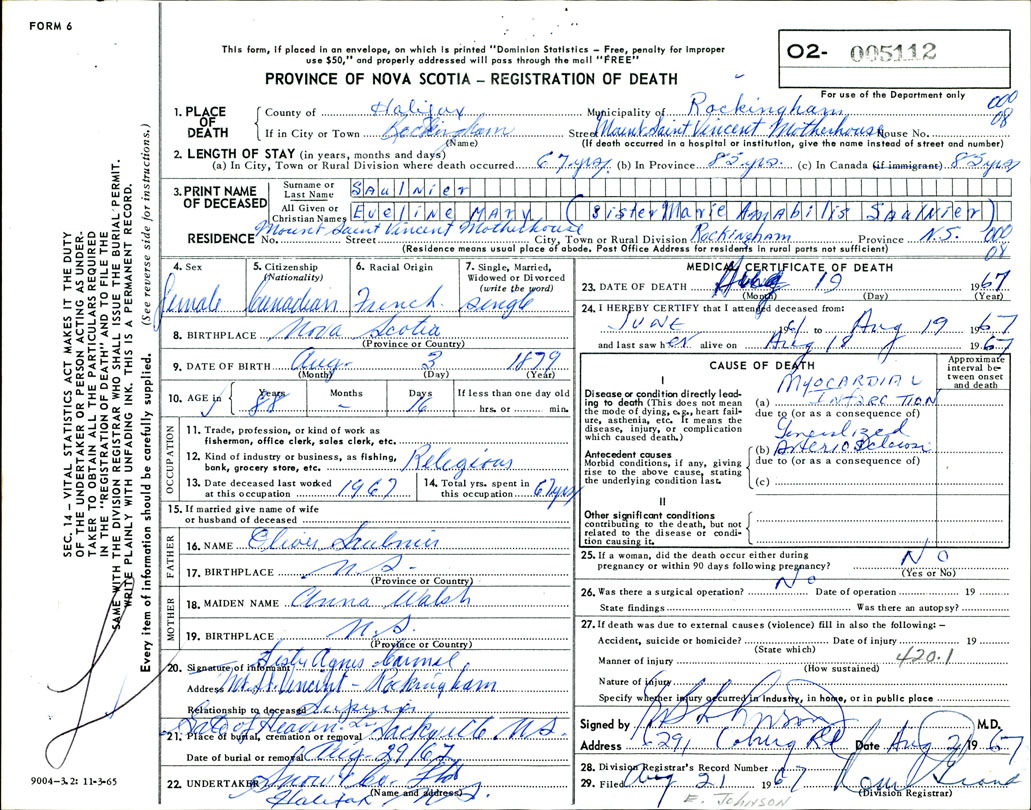 FORM 6
This form, if placed in an envelope, on which is printed "Dominion Statistics – Free, penalty for improper
use $50," and properly addressed will pass through the mail "FREE"
PROVINCE OF NOVA SCOTIA – REGISTRATION OF DEATH
O2- 005112
For use of the Department only
000
08
1. PLACE OF DEATH
County of Halifax Municipality of Rockingham
If in City or Town Rockingham Street Mount Saint Vincent Motherhouse House No.
(Name) (If death occurred in a hospital or institution, give the name instead of street and number)
2. LENGTH OF STAY (in years, months and days)
(a) In City, Town or Rural Division where death occurred 67 yrs. (b) In Province 85 yrs. (c) In Canada (if immigrant) 85 yrs
3. PRINT NAME OF DECEASED
Surname or Last Name Saulnier
All Given or Christian Names Eveline Mary (Sister Marie Amabilis Saulnier)
RESIDENCE No. Mount Saint Vincent Motherhouse Street City, Town or Rural Division Rockingham Province N.S. 000
08
(Residence means usual place of abode. Post Office Address for residents in rural parts not sufficient)
4. Sex Female
5. Citizenship (Nationality) Canadian
6. Racial Origin French
7. Single, Married, Widowed or Divorced (write the word) Single
8. BIRTHPLACE Nova Scotia
(Province or Country)
9. DATE OF BIRTH Aug. 3 1879
(Month) (Day) (Year)
10. AGE in Years 88 Months – Days 16 If less than one day old hrs. or min.
OCCUPATION
11. Trade, profession, or kind of work as
fisherman, office clerk, sales clerk, etc.
12. Kind of industry or business, as fishing,
bank, grocery store, etc. Religious
13. Date deceased last worked
at this occupation 1967
14. Total yrs. spent in
this occupation 67 yrs
15. If married give name of wife
or husband of deceased
FATHER
16. NAME Oliver Saulnier
17. BIRTHPLACE N.S.
(Province or Country)
MOTHER
18. MAIDEN NAME Anna Walsh
19. BIRTHPLACE N.S.
(Province or Country)
20. Signature of informant Sister Agnes Carmel
Address Mt. St. Vincent - Rockingham
Relationship to deceased Superior
21. Place of burial, cremation or removal Gate of Heaven Lr Sackville N.S.
Date of burial or removal Aug 29/67
22. UNDERTAKER Snow & Co. Ltd
(Name and address)
Halifax N.S.
MEDICAL CERTIFICATE OF DEATH
23. DATE OF DEATH Aug 19 1967
(Month) (Day) (Year)
24. I HEREBY CERTIFY that I attended deceased from:
JUNE 1961 to Aug 19 1967
and last saw her alive on Aug 18 1967
CAUSE OF DEATH
Approximate interval between onset and death
I
Disease or condition directly leading to death (This does not mean
the mode of dying, e.g., heart failure, asthenia, etc. It means the
disease, injury, or complication
which caused death.)
(a) MYOCARDIAL
INFARCTION
due to (or as a consequence of)
Antecedent causes
Morbid conditions, if any, giving
rise to the above cause, stating
the underlying condition last.
Generalized
(b) Arteriosclerosis
due to (or as a consequence of)
(c)
II
Other significant conditions
contributing to the death, but not
related to the disease or condition causing it.
25. If a woman, did the death occur either during
pregnancy or within 90 days following pregnancy? No
(Yes or No)
26. Was there a surgical operation? No Date of operation 19
State findings Was there an autopsy?
27. If death was due to external causes (violence) fill in also the following: –
Accident, suicide or homicide? Date of injury 19
(State which)
420.1
Manner of injury
(How sustained)
Nature of injury
Specify whether injury occurred in industry, in home, or in public place
Signed by Johnson M.D.
Address 6291 Coburg Rd Date Aug 21 1967
28. Division Registrar's Record Number
29. Filed Aug 21 1967
(Division Registrar)
E. JOHNSON
SEC. 14 – VITAL STATISTICS ACT MAKES IT THE DUTY
OF THE UNDERTAKER OR PERSON ACTING AS UNDER-
TAKER TO OBTAIN ALL THE PARTICULARS REQUIRED
IN THE "REGISTRATION OF DEATH" AND TO FILE THE
SAME WITH THE DIVISION REGISTRAR WHO SHALL ISSUE THE BURIAL PERMIT.
WRITE PLAINLY WITH UNFADING INK. THIS IS A PERMANENT RECORD.
Every item of information should be carefully supplied. (See reverse side for instructions.)
9004-3.2: 11-3-65